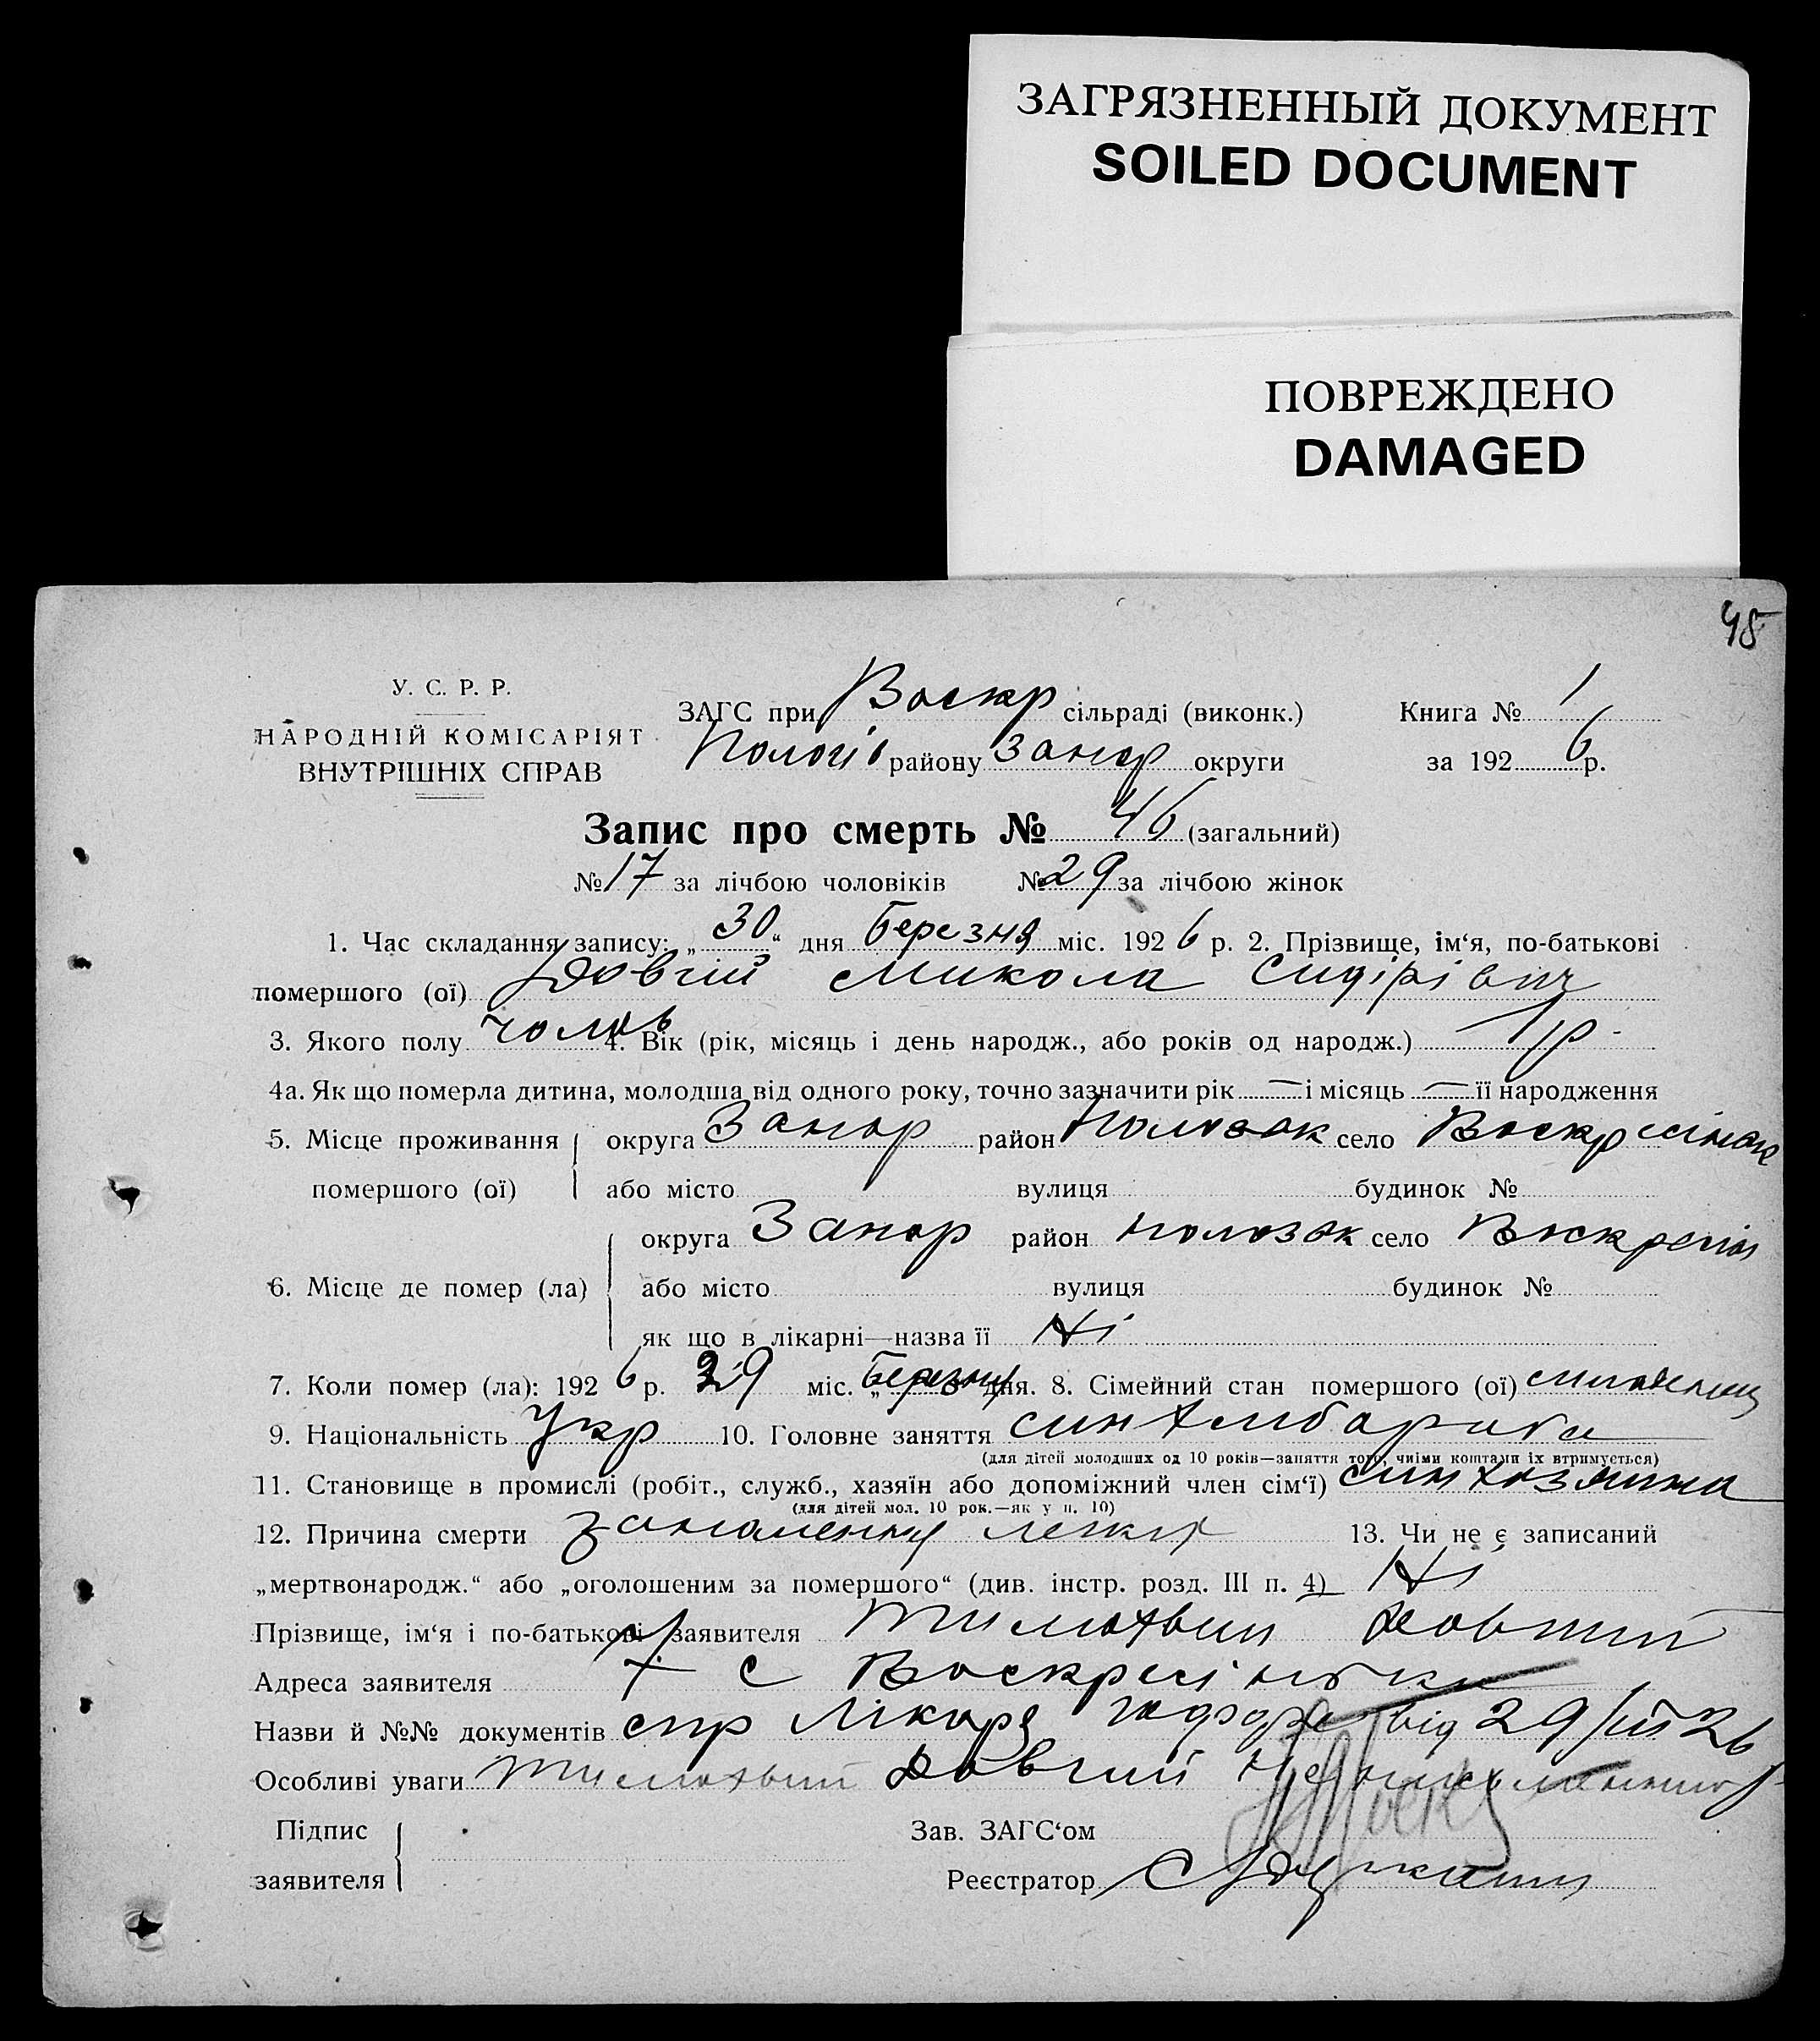 ЗАГРЯЗНЕННЫЙ ДОКУМЕНТ
SOILED DOCUMENT
ПОВРЕЖДЕНО
DAMAGED
45
У. С. Р. Р.
НАРОДНІЙ КОМІСАРІЯТ
ВНУТРІШНІХ СПРАВ
ЗАГС при Воскр сільраді (виконк.) Книга № 1
Пологів району Запор округи за 1926 р.
Запис про смерть № 46 (загальний)
№ 17 за лічбою чоловіків № 29 за лічбою жінок
1. Час складання запису: „30“ дня Березня міс. 1926 р. 2. Прізвище, ім‘я, по-батькові
помершого (ої) Довгий Микола Сидірівич
3. Якого полу чолов 4. Вік (рік, місяць і день народж., або років од народж.) 1 р
4а. Як що померла дитина, молодша від одного року, точно зазначити рік — і місяць — її народження
5. Місце проживання помершого (ої) округа Запор район село
або місто вулиця будинок №
6. Місце де помер (ла) округа Запор район село
або місто вулиця будинок №
як що в лікарні—назва її Ні
7. Коли помер (ла): 1926 р. 29 міс. „Березня дня. 8. Сімейний стан помершого (ої)
9. Національність Укр 10. Головне заняття син хлібороба
(для дітей молодших од 10 років—заняття того, чиїми коштами їх втримується)
11. Становище в промислі (робіт., служб., хазяїн або допоміжний член сім‘ї) син хозяина
(для дітей мол. 10 рок.—як у п. 10)
12. Причина смерти запалення легких 13. Чи не є записаний
„мертвонародж.“ або „оголошеним за помершого“ (див. інстр. розд. III п. 4) Ні
Прізвище, ім‘я і по-батькові заявителя Тимофвий Довгий
Адреса заявителя с Воскресінівка
Назви й №№ документів спр Лікаря від 29/III 26
Особливі уваги Тимофвий Довгий
Підпис заявителя
Зав. ЗАГС‘ом
Реєстратор